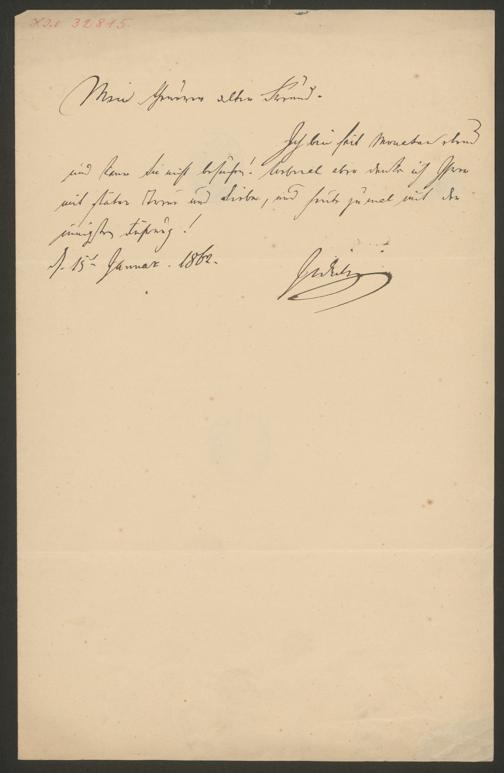 I.N. 32815
Mein theurer alter Freund.
Ich bin seit Monaten
und kann Sie nicht besuchen! Ueberall aber denke ich Ihrer
mit steter Treue und Liebe, und heute zumal mit der
innigsten
d. 15t Januar. 1862.